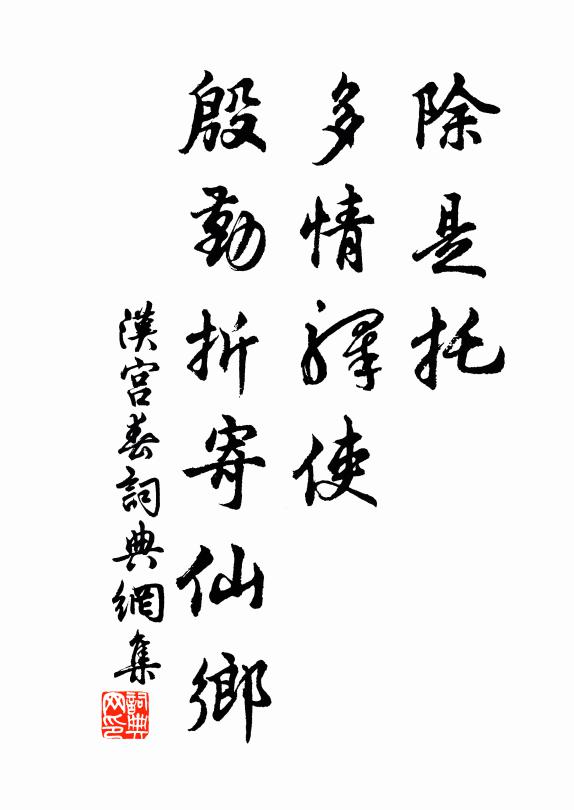 除是托
多情驛使
殷勤折寄仙鄉
漢宮春詞典網集
詞典網印